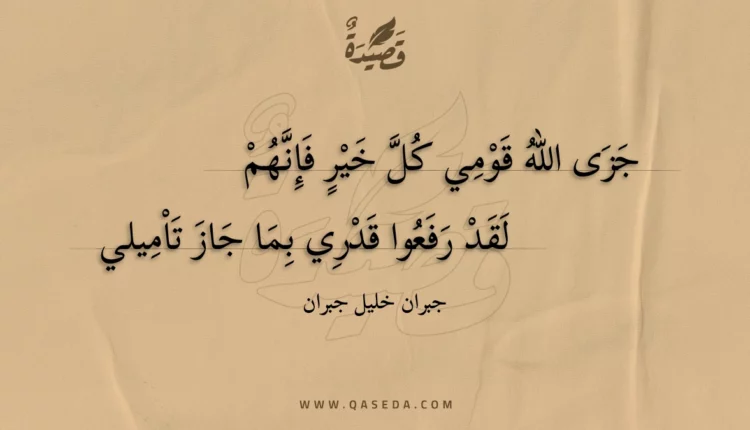 قَصِيْدَةٌ
جَزَى اللهُ قَوْمِي كُلَّ خَيْرٍ فَإِنَّهُمْ
لَقَدْ رَفَعُوا قَدْرِي بِمَا جَازَ تَاْمِيلي
جبران خليل جبران
WWW.QASEDA.COM